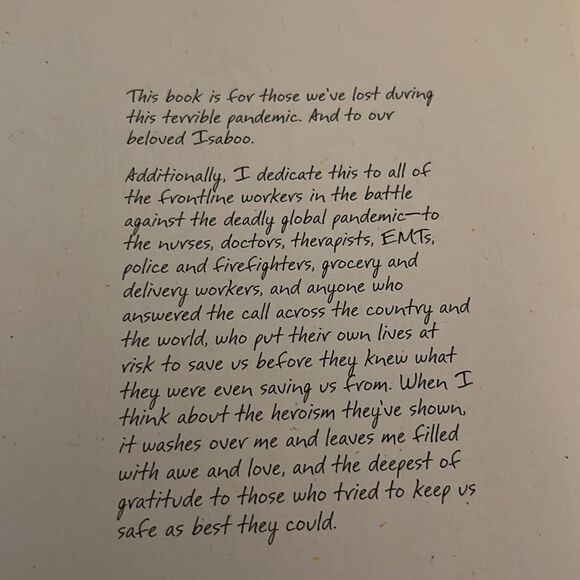 This book is for those we've lost during
this terrible pandemic. And to our
beloved Isaboo.
Additionally, I dedicate this to all of
the frontline workers in the battle
against the deadly global pandemic—to
the nurses, doctors, therapists, EMTs,
police and firefighters, grocery and
delivery workers, and anyone who
answered the call across the country and
the world, who put their own lives at
risk to save us before they knew what
they were even saving us from. When I
think about the heroism they've shown,
it washes over me and leaves me filled
with awe and love, and the deepest of
gratitude to those who tried to keep us
safe as best they could.